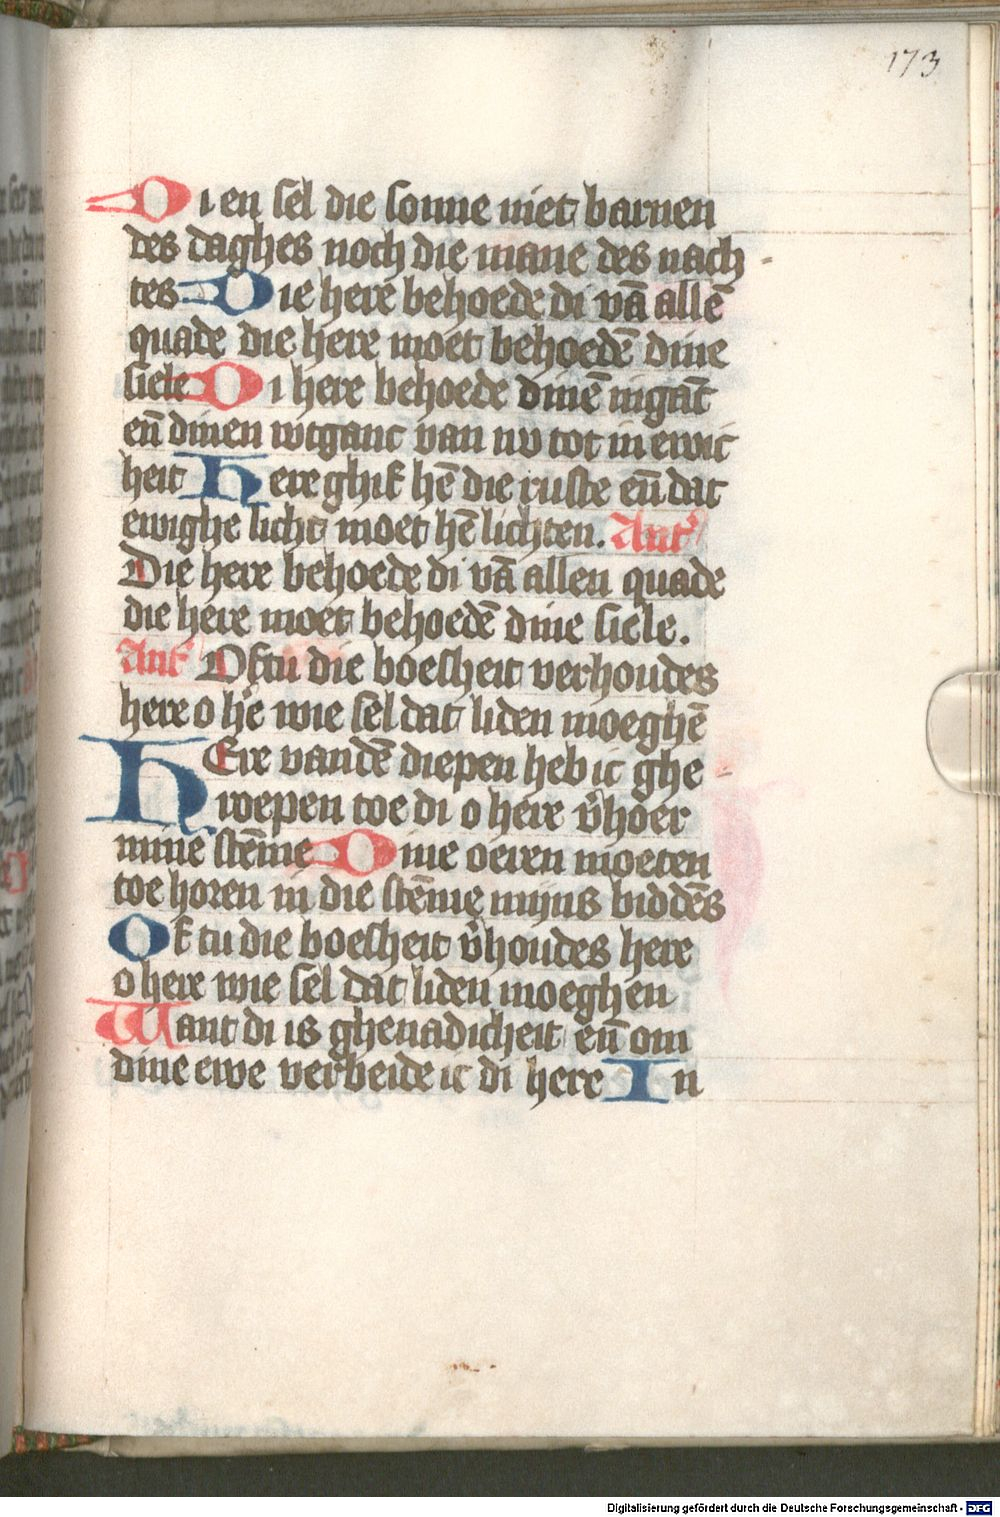 173
Di en sel die sonne niet barnen
des daghes noch die mane des nach-
tes Die here behoede di vā allē
quade die here moet behoedē dine
siele Di here behoede dinē ingāc
eñ dinen wtganc van nv tot in ewic
heit Here ghif hē die ruste eñ dat
ewighe licht moet hē lichten. Antᵉ
Die here behoede di vā allen quade
die here moet behoedē dine siele.
Antᵉ Oftu die boesheit verhoudes
here o hē wie sel dat liden moeghē
HEre vandē diepen heb ic ghe-
roepen toe di o here v̄hoer
mine stēme Dine oeren moeten
toe horen in die stēme mijns biddēs
Of tu die boesheit v̄houdes here
o here wie sel dat liden moeghen
Want di is ghenadicheit eñ om
dine ewe verbeide ic di here In
Digitalisierung gefördert durch die Deutsche Forschungsgemeinschaft - DFG